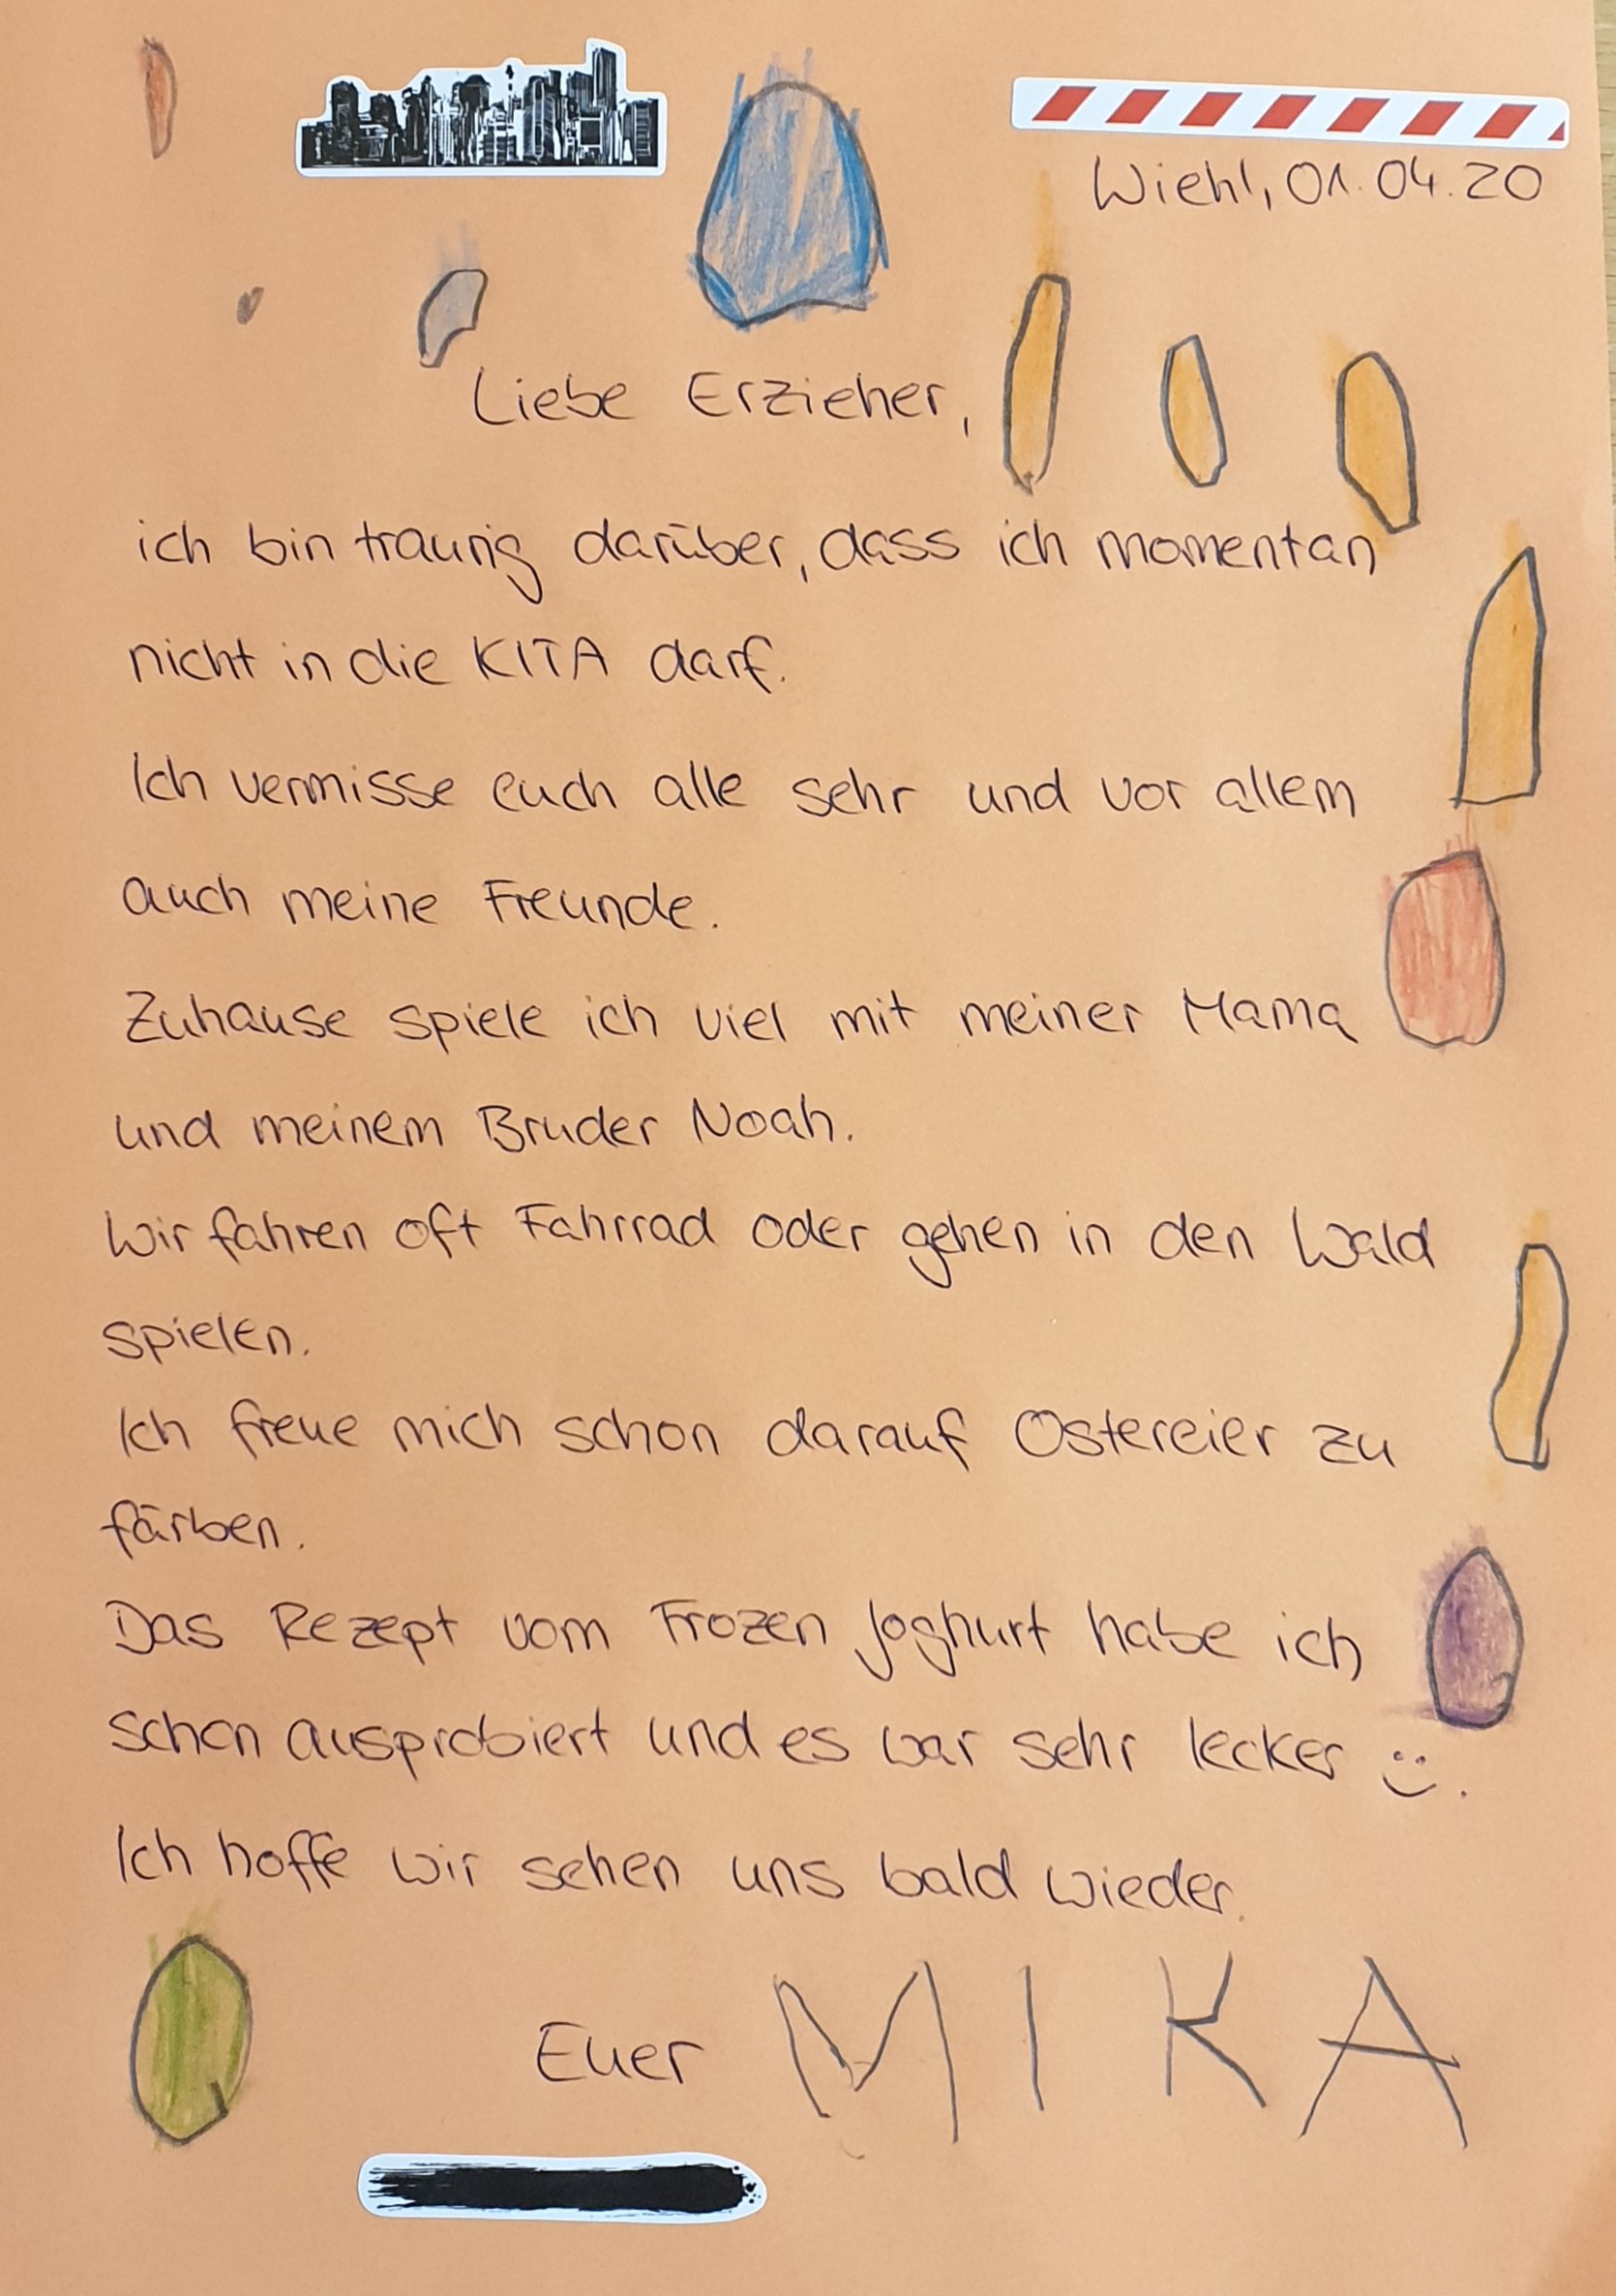 Wiehl, 01.04.20
Liebe Erzieher,
ich bin traurig darüber, dass ich momentan
nicht in die KITA darf.
Ich vermisse euch alle sehr und vor allem
auch meine Freunde.
Zuhause spiele ich viel mit meiner Mama
und meinem Bruder Noah.
Wir fahren oft Fahrrad oder gehen in den Wald
spielen.
Ich freue mich schon darauf Ostereier zu
färben.
Das Rezept vom Frozen Joghurt habe ich
schon ausprobiert und es war sehr lecker :).
Ich hoffe wir sehen uns bald wieder.
Euer MIKA